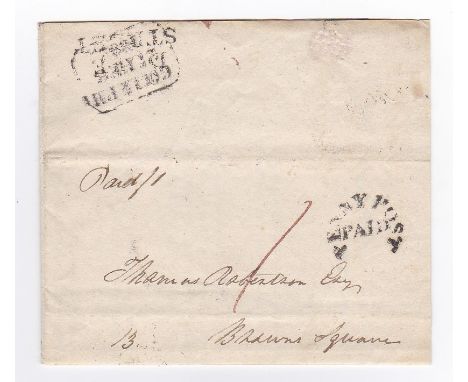 Paid/1
PENNY POST
PAID
Thomas Robertson Esq
13 Browns Square